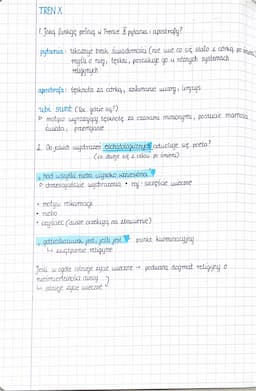 TREN X
1. Jaką funkcję pełnią w Trenie X pytania i apostrofy?
pytania: ukazuje brak świadomości (nie wie co się stało z córką po śmierci)
myśli o niej, tęskni, poszukuje go w różnych systemach
religijnych
apostrofa: tęsknota za córką, załamanie wiary, liryzm
ubi sunt (łac. gdzie są?)
motyw wyrażający tęsknotę za czasami minionymi, poczucie marności
świata, przemijanie
2. Do jakich wyobrażeń eschatologicznych odwołuje się poeta?
(co dzieje się z nami po śmierci)
„nad wszytki nieba wysoko wzniesiona”
chrześcijańskie wyobrażenia • raj - szczęście wieczne
• motyw reinkarnacji
• niebo
• czyściec (dusze oczekują na zbawienie)
„gdzieśkolwiek jest, jeśliś jest” punkt kulminacyjny
zwątpienie religijne
Jeśli w ogóle istnieje życie wieczne → podważa dogmat religijny o
nieśmiertelności duszy
istnieje życie wieczne